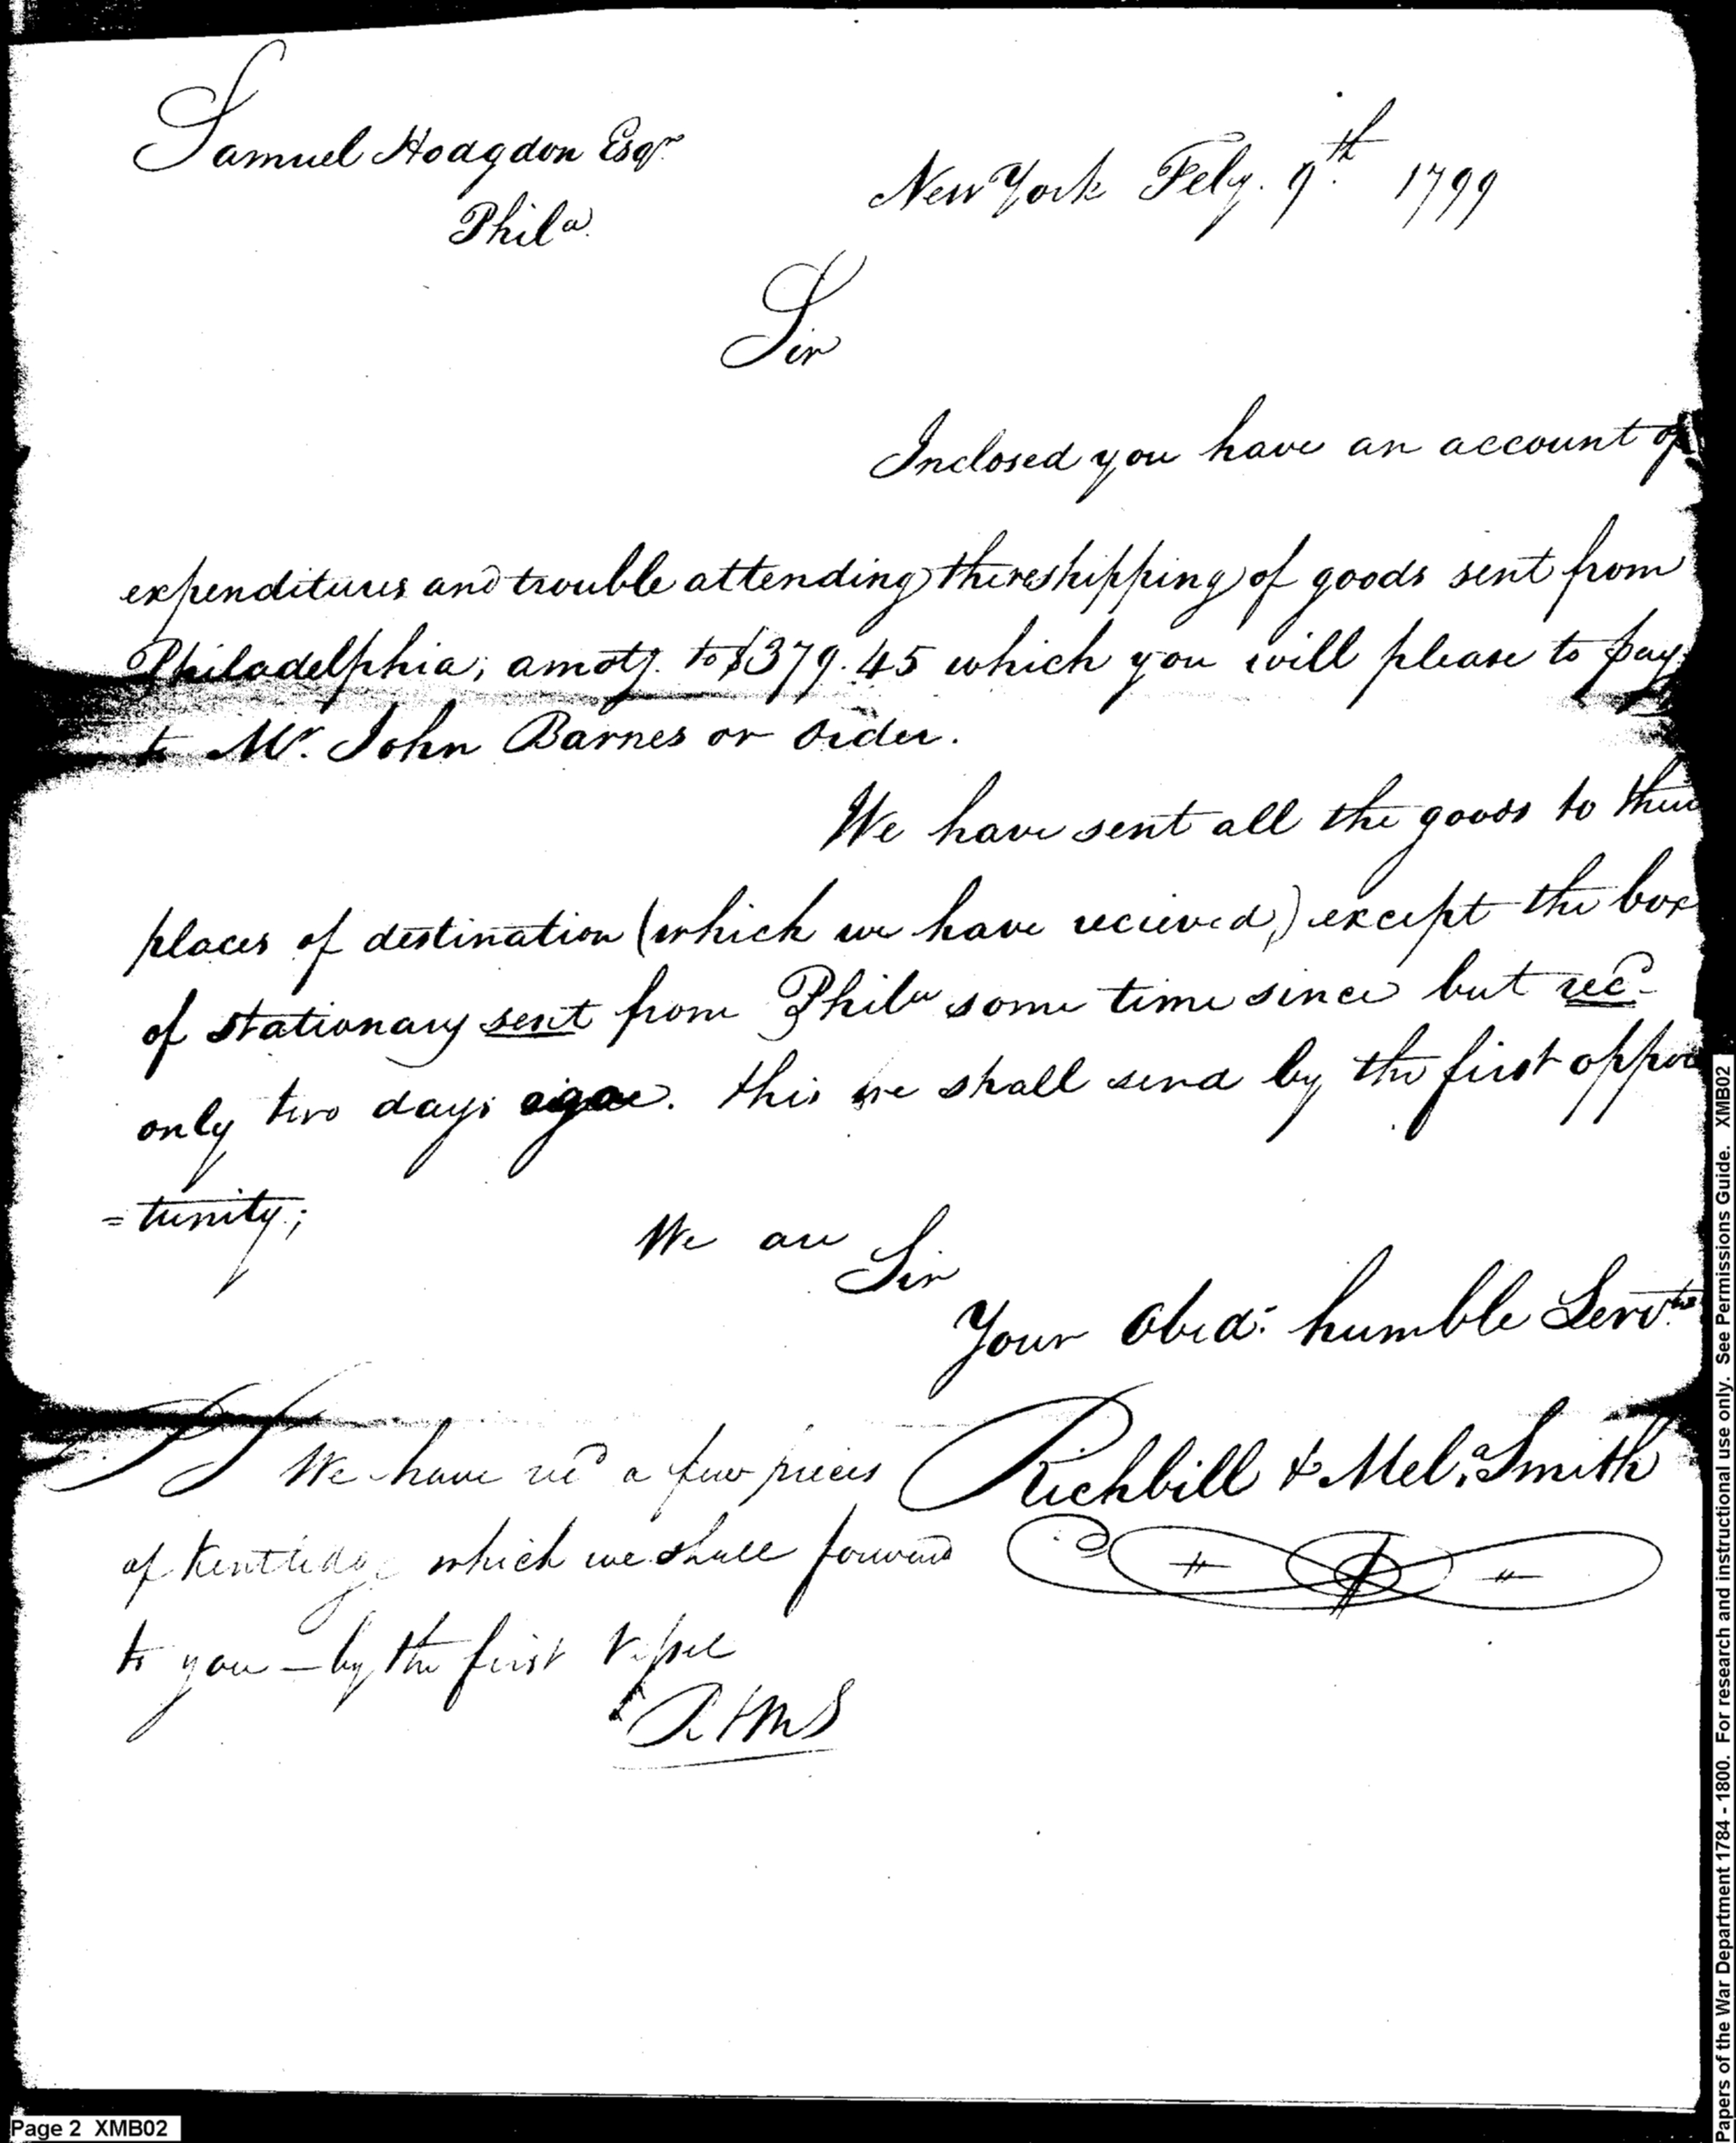 Samuel Hodgdon Esqr.
Phila.
New York Feby. 9th. 1799
Sir
Inclosed you have an account of
expenditures and trouble attending the reshipping of goods sent from
Philadelphia, amotg. to $379.45 which you will please to pay
to Mr. John Barnes or order.
We have sent all the goods to their
places of destination (which we have recieved,) except the box
of stationary sent from Phila some time since but recd.
only two days agoe. this we shall send by the first oppor
=tunity;
We are
Sir
Your Obed: humble Servts.
Richbill & Mel. Smith
PS We have recd a few pieces
of Kentledge which we shall forward
to you — by the first Vessel
R & MS
Page 2 XMB02
Papers of the War Department 1784 - 1800. For research and instructional use only. See Permissions Guide. XMB02